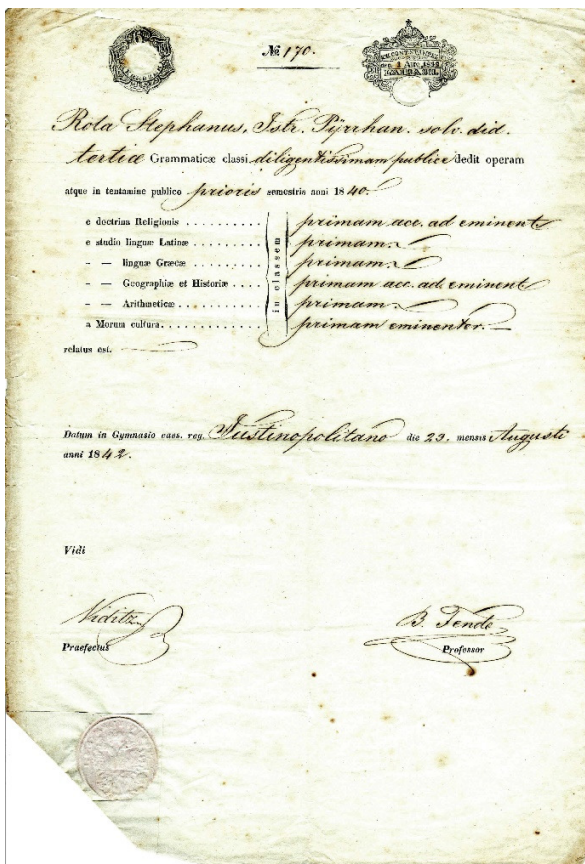 № 170.
Rota Stephanus, Istr. Pyrrhan. solv. did.
tertiæ Grammaticæ classi diligentissimam publice dedit operam
atque in tentamine publico prioris semestris anni 1840.
e doctrina Religionis . . . . . . . . . . primam acc. ad eminent
e studio linguæ Latinæ . . . . . . . . . . primam.
- — linguæ Græcæ . . . . . . . . . . primam.
- — Geographiæ et Historiæ . . . . primam acc. ad eminent
- — Arithmeticæ . . . . . . . . . . primam.
a Morum cultura . . . . . . . . . . primam eminenter.
in classem
relatus est.
Datum in Gymnasio caes. reg. Justinopolitano die 29. mensis Augusti
anni 1842.
Vidi
B. Tende
Praefectus Professor